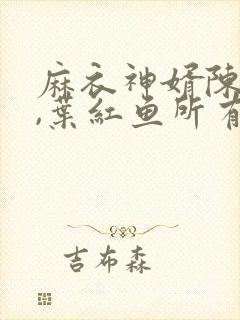 麻衣神婿陈
,葉紅鱼所有
吉布森